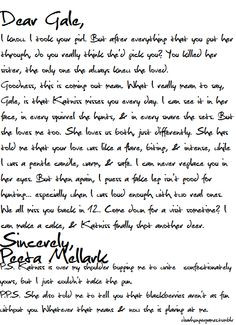 Dear Gale,
I know I took your girl. But after everything that you put her
through, do you really think she'd pick you? You killed her
sister, the only one she always knew she loved.
Goodness, this is coming out mean. What I really mean to say,
Gale, is that Katniss misses you every day. I can see it in her
face, in every squirrel she hunts, & in every snare she sets. But
she loves me too. She loves us both, just differently. She has
told me that your love was like a flare, biting, & intense, while
I was a gentle candle, warm, & safe. I can never replace you in
her eyes. But then again, I guess a fake leg isn't good for
hunting... especially when I was loud enough with two real ones.
We all miss you back in 12. Come down for a visit sometime? I
can make a cake, & Katniss finally shot another deer.
Sincerely,
Peeta Mellark
P.S. Katniss is over my shoulder bugging me to write confectionately
yours, but I just couldn't take the pun.
P.P.S. She also told me to tell you that blackberries aren't as fun
without you. Whatever that means & now she is glaring at me.